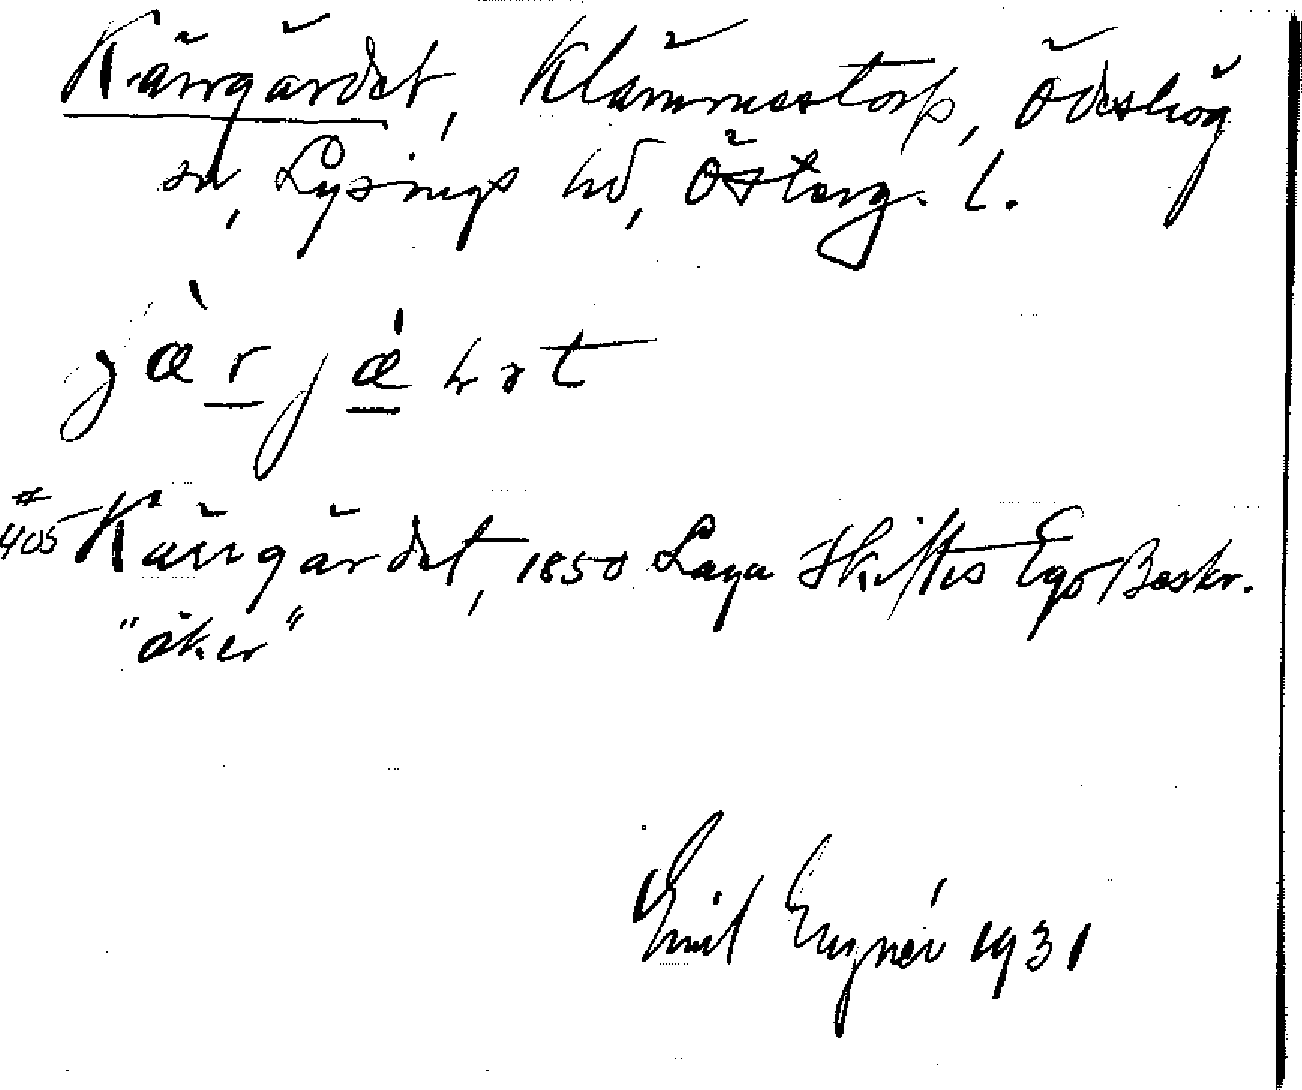 Kärrgärdet, Klämmestorp, Ödeshög
sn, Lysings hd, Österg. l.
Kärrgärdet, 1850 Laga Skiftes Ego Beskr.
405
"åker"
Emil Engnér 1931